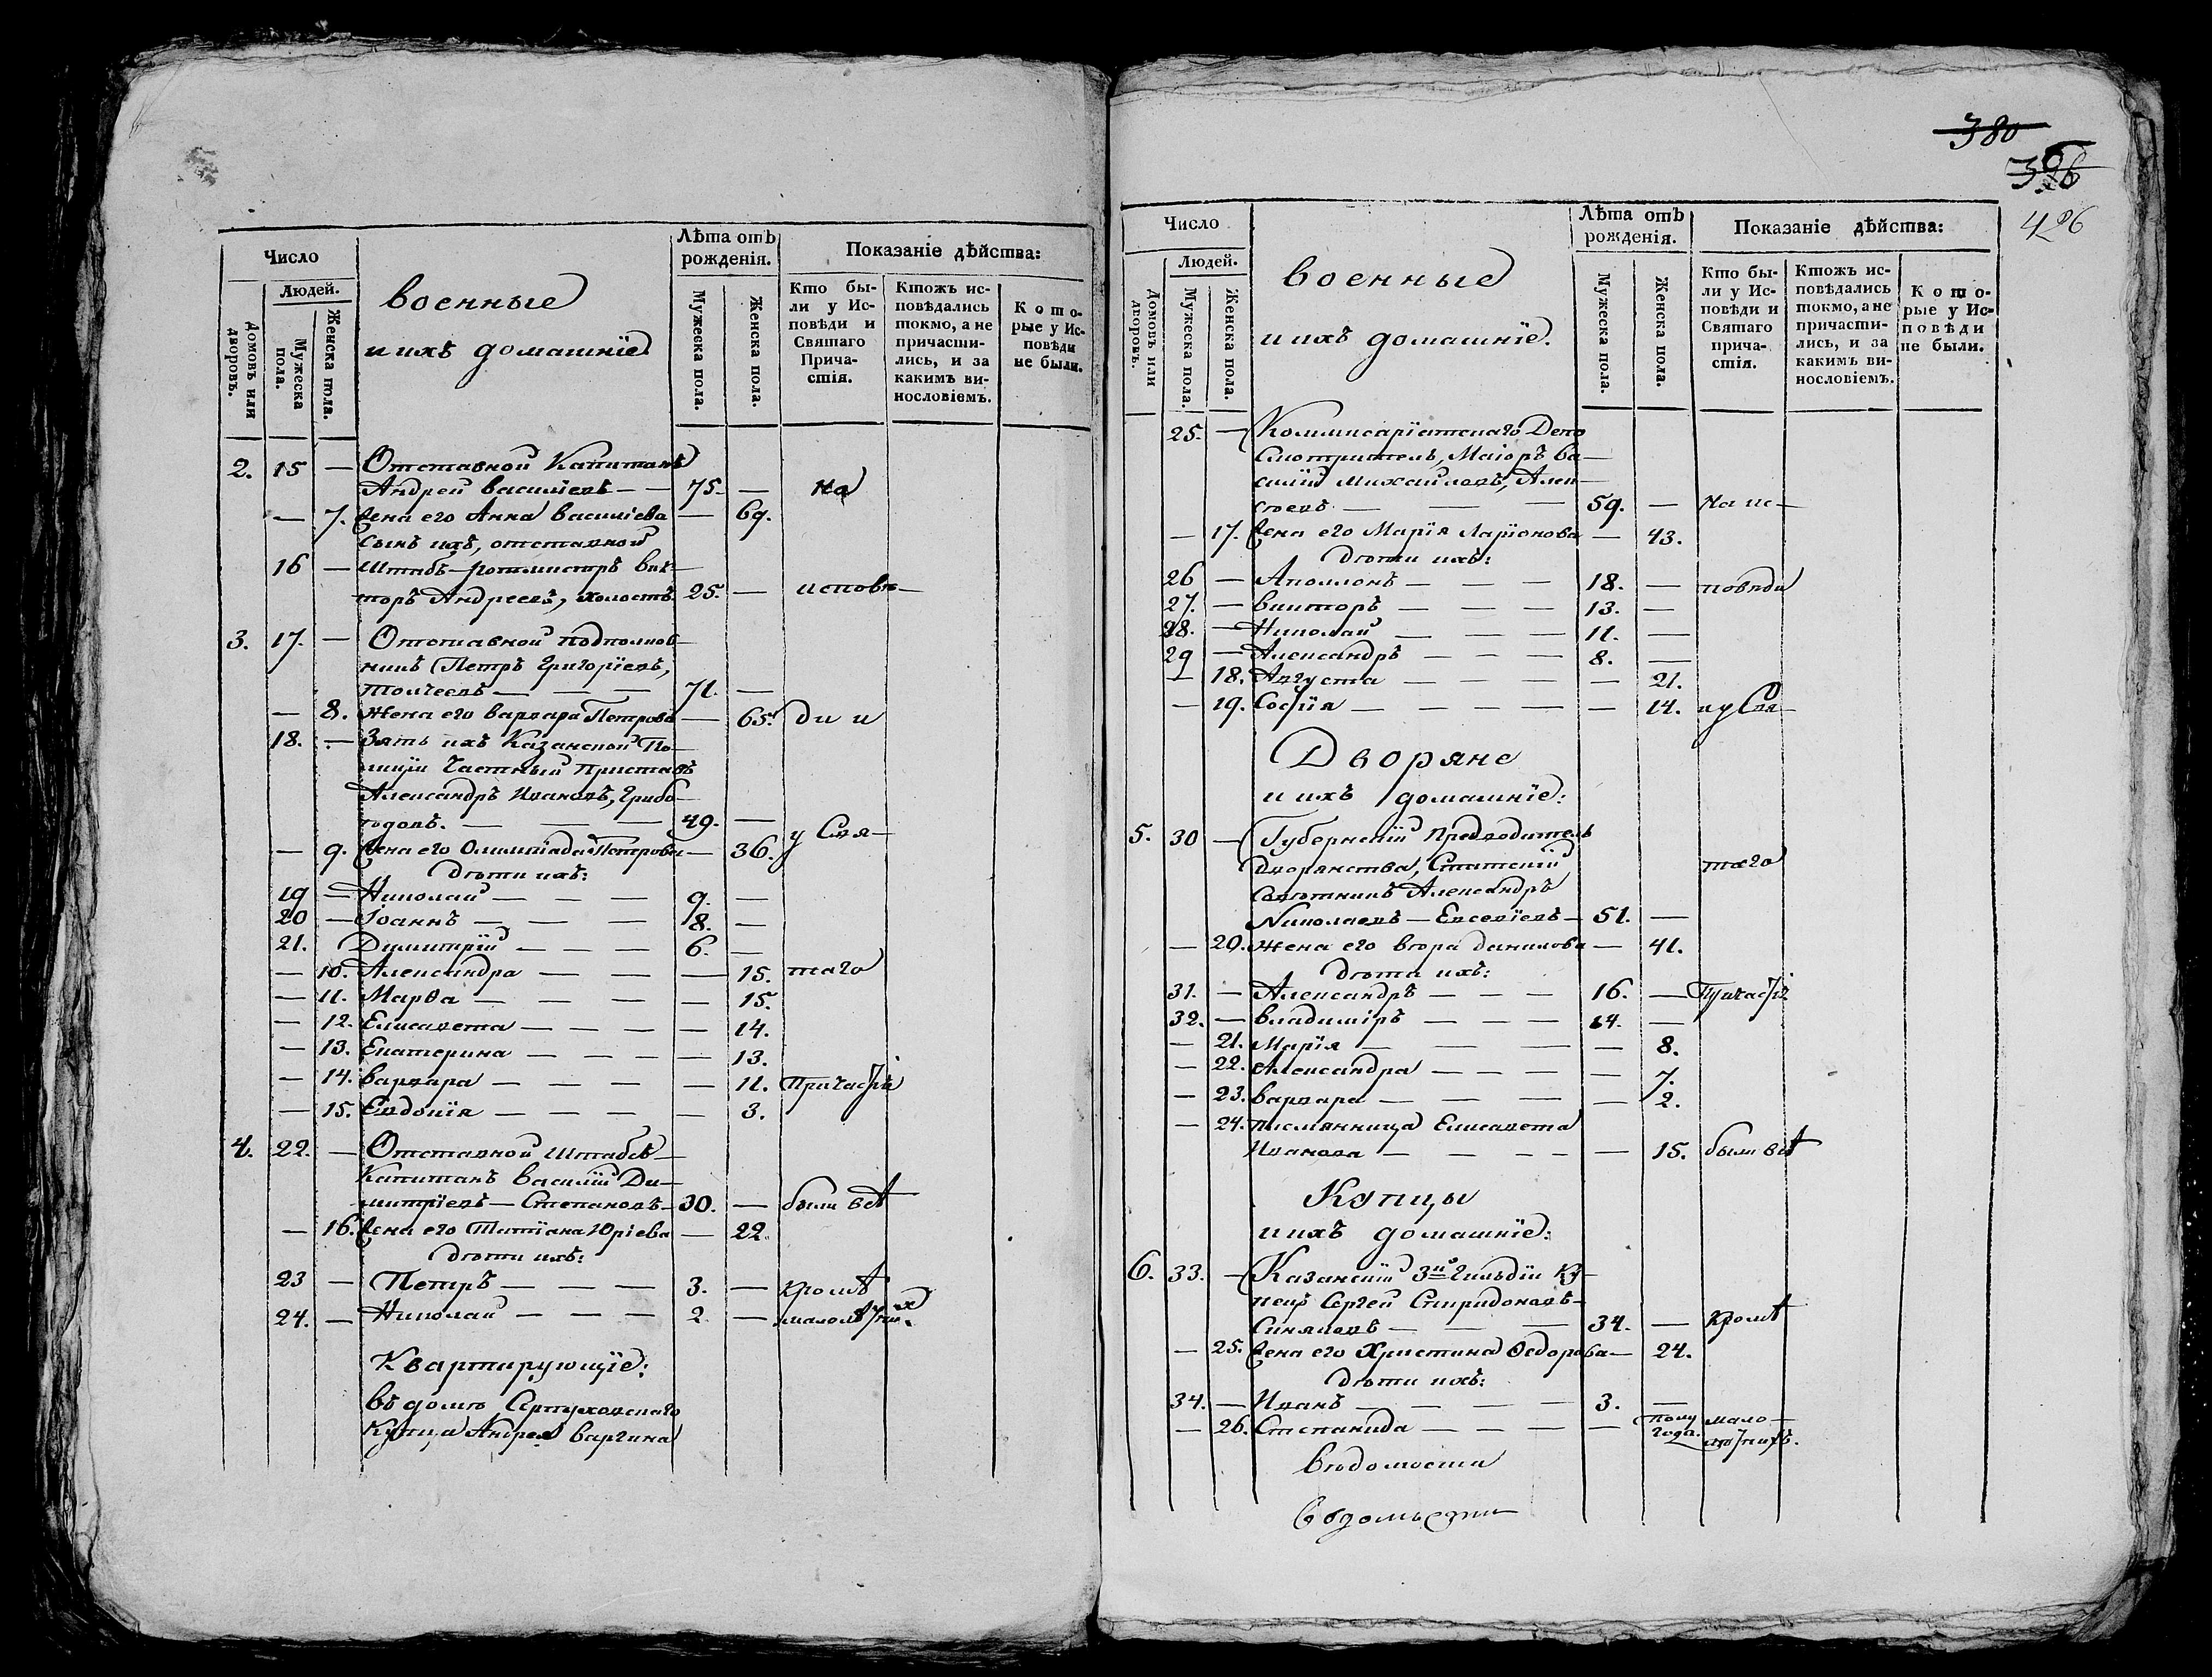 Число
Людей.
Домовъ или дворовъ.
Мужеска пола.
Женска пола.
военные
и ихъ домашніе
Лѣта отъ
рожденія.
Мужеска пола.
Женска пола.
Показаніе дѣйства:
Кто бы-
ли у Ис-
повѣди и
Святаго
Прича-
стія.
Ктожъ ис-
повѣдались
токмо, а не
причасти-
лись, и за
какимъ ви-
нословіемъ.
Кото-
рые у Ис-
повѣди
не были.
2. 15 — Отставной Капитанъ
Андрей Васильевъ — — 75. — на
— 7. Жена его Анна Васильева — 69.
Сынъ ихъ, отставной
16 — Штабъ-Ротмистръ Вик-
торъ Андреевъ, холостъ. 25. — исповѣ-
3. 17. — Отставной Подполков-
никъ Петръ Григорїевъ,
Толчеевъ — — — 71. —
— 8. Жена его Варвара Петрова — 65. ди и
18. — Зять ихъ Казанской По-
лиціи Частный Приставъ
Александръ Ивановъ, Грибо-
годовъ. — — — 49. — у Свя-
— 9. Жена его Олимпїада Петрова — 36.
Дѣти ихъ:
19 — Николай — — — 9. —
20 — Іоаннъ — — — 8. —
21. Димитрїй — — — 6. —
— 10. Александра — — — 15. таго
— 11. Марѳа — — — — 15.
— 12. Елисавета — — — — 14.
— 13. Екатерина — — — — 13.
— 14. Варвара — — — — 11. Причастїя
— 15. Евдокїя — — — — 3.
4. 22. — Отставной Штабсъ-
Капитанъ Василїй Ди-
митрїевъ — Степановъ — 30. — были всѣ
— 16. Жена его Татїана Юрїева — 22.
Дѣти ихъ:
23 — Петръ — — — 3. — кромѣ
24. — Николай — — — 2 — малолѣтнихъ.
Квартирующїе:
въ домѣ Серпуховскаго
Купца Андрея Варгина
380
396
426
Число
Людей.
Домовъ или дворовъ.
Мужеска пола.
Женска пола.
военные
и ихъ домашнїе.
Лѣта отъ
рожденія.
Мужеска пола.
Женска пола.
Показаніе дѣйства:
Кто бы-
ли у Ис-
повѣди и
Святаго
прича-
стія.
Ктожъ ис-
повѣдались
токмо, а не
причасти-
лись, и за
какимъ ви-
нословіемъ.
Кото-
рые у Ис-
повѣди
не были.
25. — Коммисарїатскаго Депо
Смотритель, Маіоръ Ва-
силїй Михайловъ, Алек-
сѣевъ — — — 59. — на ис-
— 17. Жена его Марїя Ларїонова — 43.
Дѣти ихъ:
26 — Аполлонъ — — — 18. — повѣди
27. — Викторъ — — — 13. —
28. — Николай — — — 11. —
29 — Александръ — — — 8. —
— 18. Августа — — — — 21.
— 19. Софїя — — — — 14. и у Свя-
Дворяне
и ихъ домашнїе:
5. 30 — Губернскїй Предводитель
Дворянства, Статскїй таго
Совѣтникъ Александръ
Николаевъ — Евсевїевъ — 51. —
— 20. Жена его Вѣра Данилова — 41.
Дѣти ихъ:
31. — Александръ — — — 16. — Причастїя
32. — Владимїръ — — — 14. —
— 21. Марїя — — — — 8.
— 22. Александра — — — — 7.
— 23. Варвара — — — — 2.
— 24. Племянница Елисавета
Иванова — — — — — 15. были всѣ
Купцы
и ихъ домашнїе:
6. 33. — Казанскїй 3й Гильдїи Ку-
пецъ Сергей Спиридоновъ —
Синяковъ — — — 34. — кромѣ
— 25. Жена его Христина Ѳедорова — 24.
Дѣти ихъ:
34. — Иванъ — — — — 3. —
— 26. Степанида — — — — полу года. мало-
лѣтнихъ.
Вѣдомости
Вѣдомости